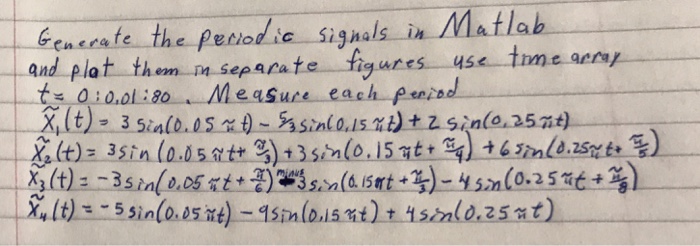 Generate the periodic signals in Matlab
and plot them in separate figures use time array
t = 0:0.01:80. Measure each period
x̃₁(t) = 3 sin(0.05πt) - 5/3 sin(0.15πt) + 2 sin(0.25πt)
x̃₂(t) = 3 sin(0.05πt + π/3) + 3 sin(0.15πt + π/4) + 6 sin(0.25πt + π/5)
x̃₃(t) = -3 sin(0.05πt + π/6) minus - 3 sin(0.15πt + π/3) - 4 sin(0.25πt + π/8)
x̃₄(t) = -5 sin(0.05πt) - 9 sin(0.15πt) + 4 sin(0.25πt)